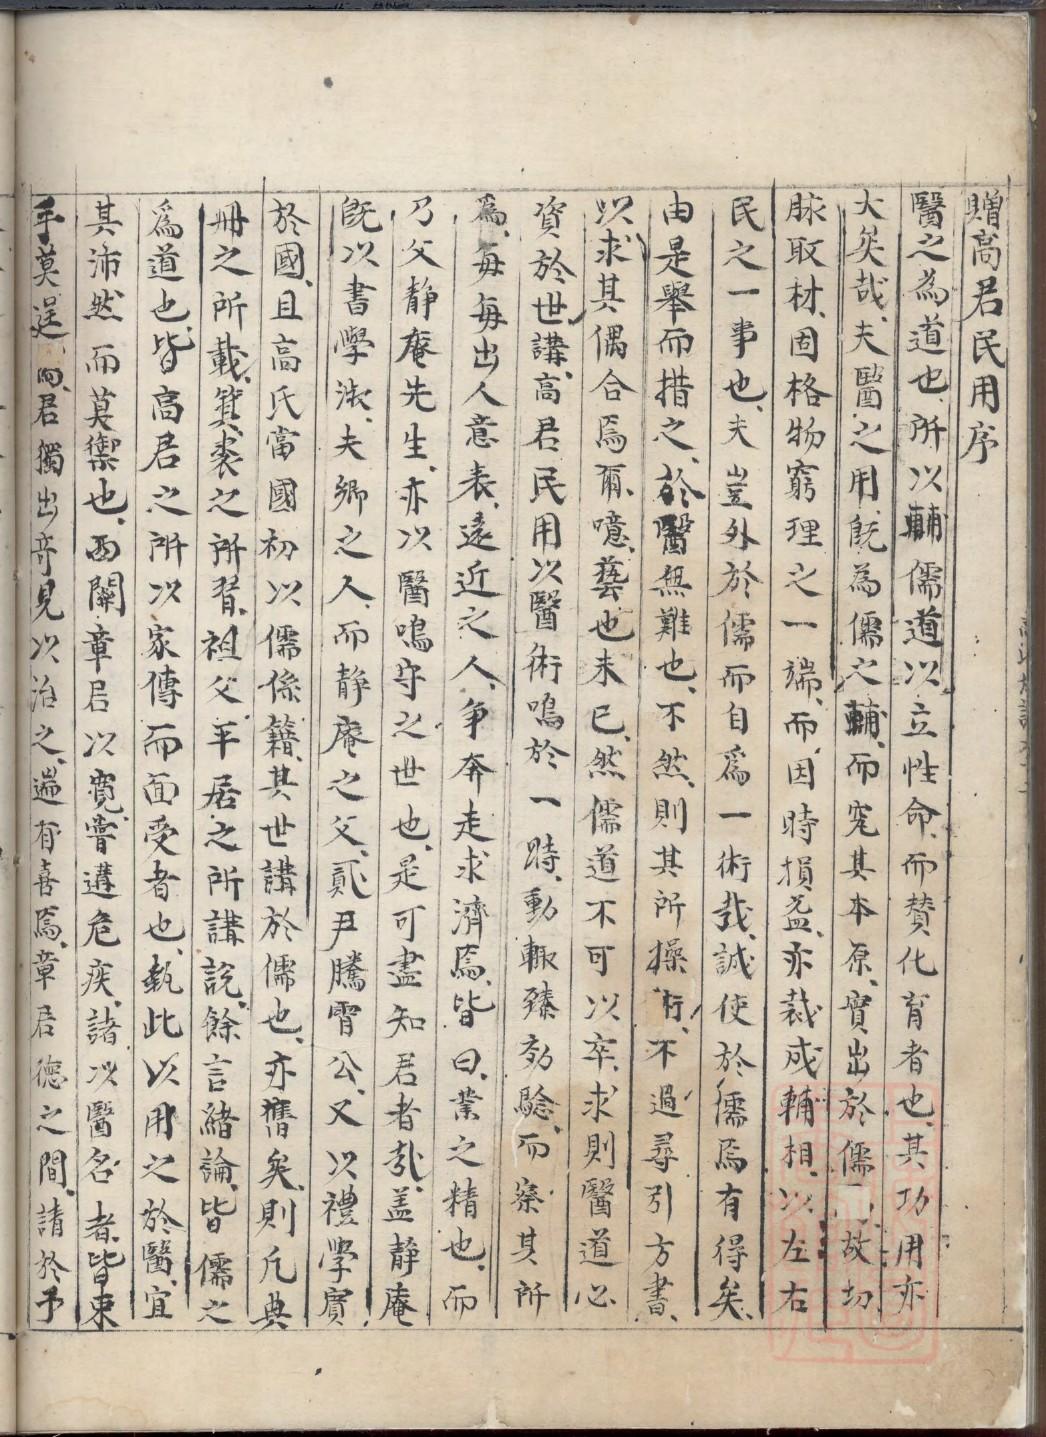 贈高君民用序
醫之為道也所以輔儒道以立性命而賛化育者也其功用亦
大矣哉夫醫之用既為儒之輔而究其本原實出於儒故切
脉取材固格物窮理之一端而因時損益亦裁成輔相以左右
民之一事也夫豈外於儒而自爲一術哉誠使於儒焉有得矣
由是舉而措之於醫無難也不然則其所操不過尋引方書
以求其偶合焉爾噫藝也未已然儒道不可以卒求則醫道必
資於世講高君民用以醫術鳴於一時動輙臻効驗而察其所
爲每每出人意表遠近之人争奔走求濟焉皆曰業之精也而
乃父靜庵先生亦以醫鳴守之世也是可盡知君者哉盖靜庵
既以書學淑夫鄉之人而靜庵之父貳尹騰霄公又以禮學實
於國且高氏當國初以儒係籍其世講於儒也亦舊矣則凡典
冊之所載箕裘之所習祖父平居之所講說餘言緒論皆儒之
爲道也皆高君之所以家傳而面受者也執此以用之於醫宜
其沛然而莫禦也西關章君以寛嘗遘危疾諸以醫名者皆束
手莫逞而君獨出竒見以治之遄有喜焉章君德之間請於予